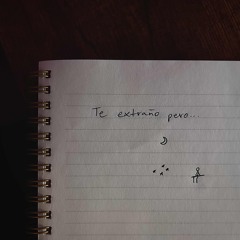 Te extraño pero...